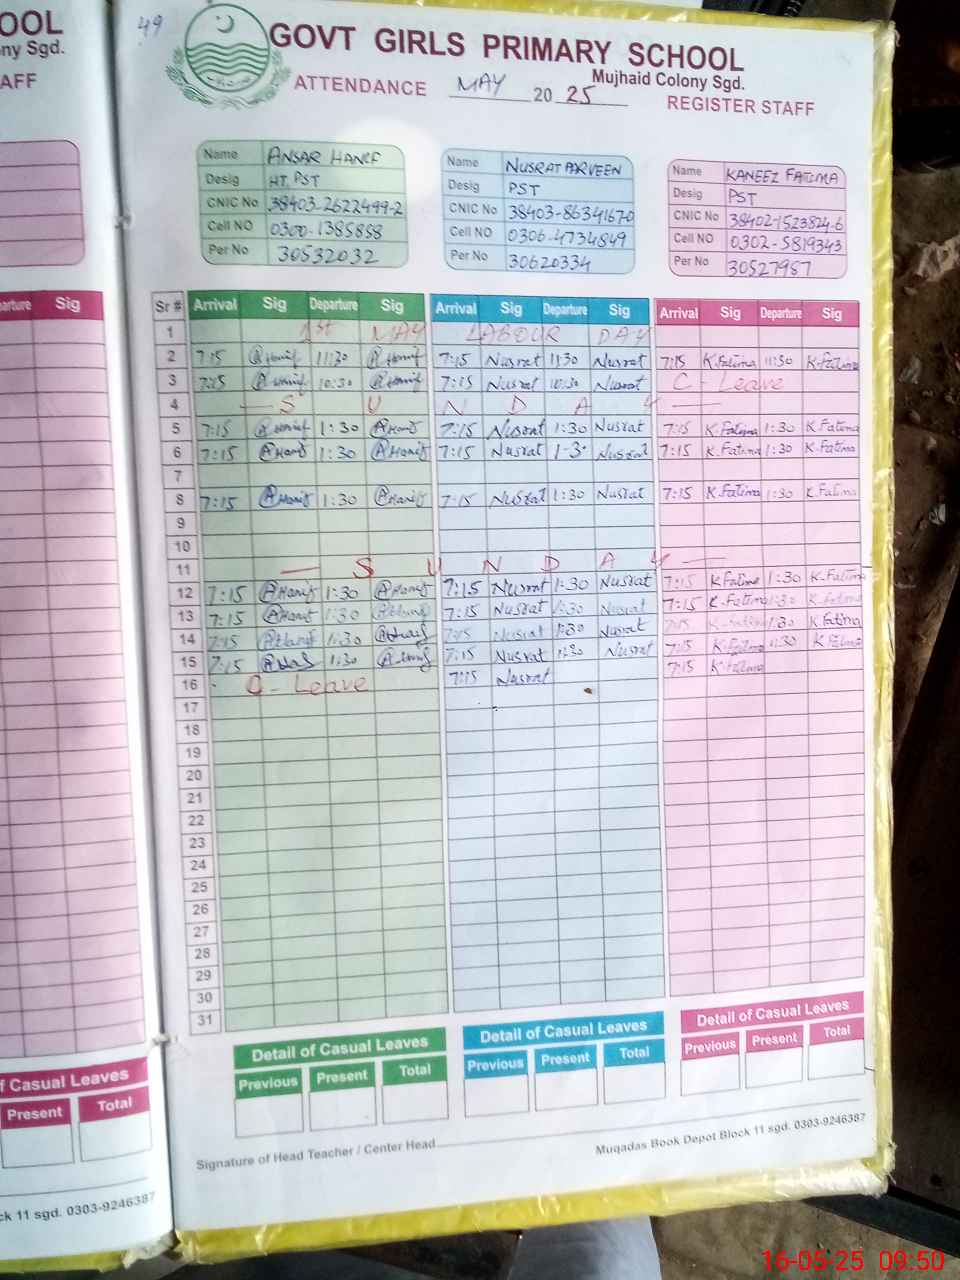 OOL
ny Sgd.
AFF
49
GOVT GIRLS PRIMARY SCHOOL
Mujhaid Colony Sgd.
ATTENDANCE MAY 20 25 REGISTER STAFF
Name ANSAR HANIF
Desig HT. PST
CNIC No 38403-2622499-2
Cell NO 0300-1385858
Per No 30532032
Name NUSRAT PARVEEN
Desig PST
CNIC No 38403-8634167-0
Cell NO 0306-4734849
Per No 30620334
Name KANEEZ FATIMA
Desig PST
CNIC No 38402-1523824-6
Cell NO 0302-5819343
Per No 30527987
parture Sig
Sr # Arrival Sig Departure Sig Arrival Sig Departure Sig Arrival Sig Departure Sig
1 1st MAY LABOUR DAY
2 7:15 @Hanif 11:30 @Hanif 7:15 Nusrat 11:30 Nusrat 7:15 K.Fatima 11:30 K.Fatima
3 7:15 @Hanif 10:30 @Hanif 7:15 Nusrat 10:30 Nusrat C - Leave
4 — S U N D A Y —
5 7:15 @Hanif 1:30 @Hanif 7:15 Nusrat 1:30 Nusrat 7:15 K.Fatima 1:30 K.Fatima
6 7:15 @Hanif 1:30 @Hanif 7:15 Nusrat 1-3· Nusrat 7:15 K.Fatima 1:30 K.Fatima
7
8 7:15 @Hanif 1:30 @Hanif 7:15 Nusrat 1:30 Nusrat 7:15 K.Fatima 1:30 K.Fatima
9
10
11 — S U N D A Y —
12 7:15 @Hanif 1:30 @Hanif 7:15 Nusrat 1:30 Nusrat 7:15 K Fatima 1:30 K.Fatima
13 7:15 @Hanif 1:30 @Hanif 7:15 Nusrat 1:30 Nusrat 7:15 K.Fatima 1:30 K.Fatima
14 7:15 @Hanif 1:30 @Hanif 7:15 Nusrat 1:30 Nusrat 7:15 K.Fatima 1:30 K.Fatima
15 7:15 @Hanif 1:30 @Hanif 7:15 Nusrat 1:30 Nusrat 7:15 K.Fatima 1:30 K Fatima
16 C - Leave 7:15 Nusrat 7:15 K.Fatima
17
18
19
20
21
22
23
24
25
26
27
28
29
30
31
Detail of Casual Leaves Detail of Casual Leaves Detail of Casual Leaves
Previous Present Total Previous Present Total Previous Present Total
f Casual Leaves
Present Total
Signature of Head Teacher / Center Head
Muqadas Book Depot Block 11 sgd. 0303-9246387
ck 11 sgd. 0303-9246387
16-05-25 09:50